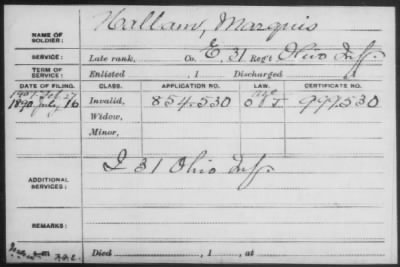 NAME OF SOLDIER: Hallam, Marquis
SERVICE: Late rank, Co. E, 31 Reg't Ohio Inf.
TERM OF SERVICE: Enlisted , 1 Discharged
DATE OF FILING. CLASS. APPLICATION NO. LAW. CERTIFICATE NO.
1907, Feb. 27 Age
1890 July 16 Invalid, 854.530
Widow,
Minor,
ADDITIONAL SERVICES: I 31 Ohio Inf.
REMARKS:
Died , 1 , at